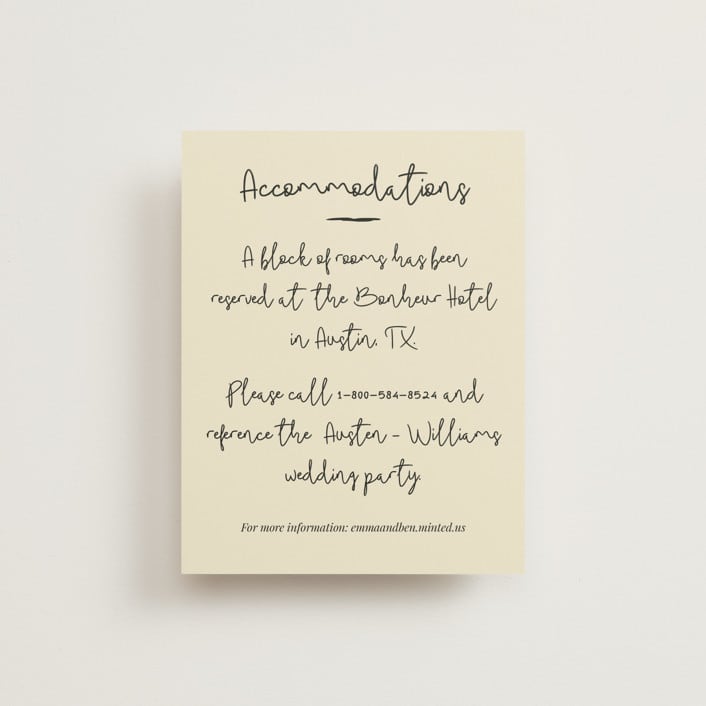 Accommodations
A block of rooms has been
reserved at the Bonheur Hotel
in Austin, TX.
Please call 1-800-584-8524 and
reference the Austen - Williams
wedding party.
For more information: emmaandben.minted.us